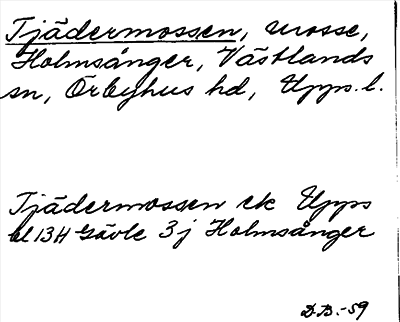 Tjädermossen, mosse,
Holmsånger, Västlands
sn, Örbyhus hd, Upps. l.
Tjädermossen ek Upps
bl 13H Gävle 3j Holmsånger
D.B.-59